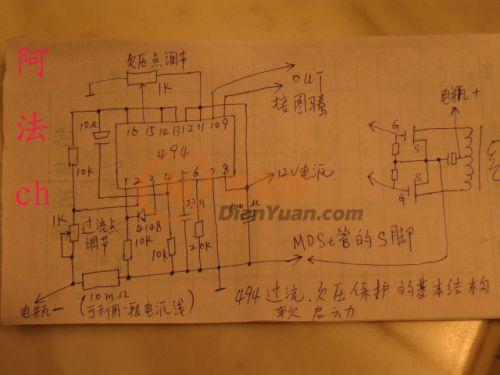 阿法ch
欠压点调节
1K
OUT
接图腾
电瓶+
10μ
16 15 14 13 12 11 10 9
494
1 2 3 4 5 6 7 8
12V电源
10K
G
S
S
G
1K
过流点
调节
4148
10K
10K
20K
μ
DianYuan.com
MOSt管的S脚
10mΩ
电瓶-
(可利用一段电源线)
494过流、欠压保护的基本结构
软启动